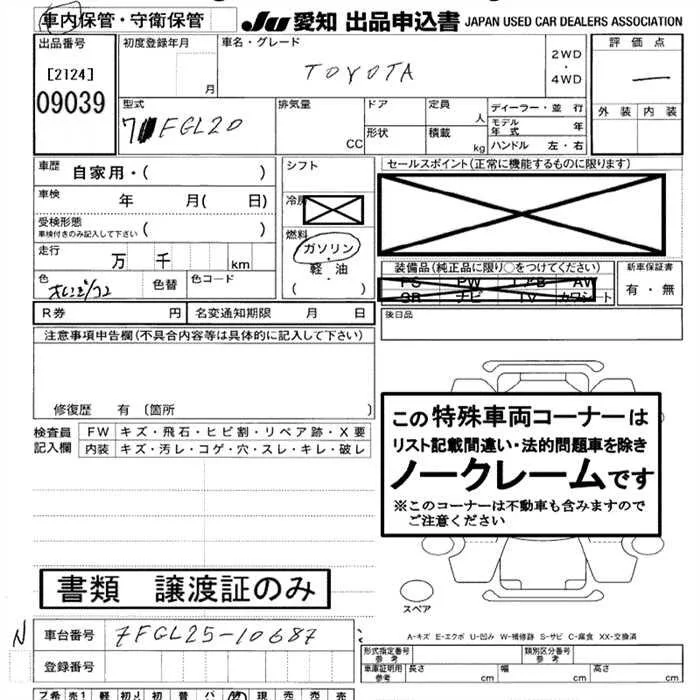 車内保管・守衛保管 JU 愛知 出品申込書 JAPAN USED CAR DEALERS ASSOCIATION
出品番号 初度登録年月 車名・グレード 評価点
[2124] 月 TOYOTA 2WD・4WD
09039
型式 排気量 ドア 定員 ディーラー・並行 外装 内装
FGL20 CC 形状 人 モデル年式 年
積載 kg ハンドル 左・右
車歴 自家用・( ) シフト セールスポイント(正常に機能するものに限ります)
車検 年 月( 日)
受検形態 車検付きのみ記入して下さい ( )
燃料
走行 万 千 km ガソリン・軽油 ( )
装備品(純正品に限り○をつけてください) 新車保証書
色 色替 色コード 有・無
R券 円 名変通知期限 月 日 後日品
注意事項申告欄(不具合内容等は具体的に記入して下さい)
修復歴 有 〔箇所 〕
検査員記入欄 FW キズ・飛石・ヒビ割・リペア跡・X要
内装 キズ・汚レ・コゲ・穴・スレ・キレ・破レ
この特殊車両コーナーは
リスト記載間違い・法的問題車を除き
ノークレームです
※このコーナーは不動車も含みますので
ご注意ください
書類 譲渡証のみ
スペア
A-キズ E-エクボ U-凹み W-補修跡 S-サビ C-腐食 XX-交換済
N 車台番号 7FGL25-10687
登録番号
形式指定番号 参考 類別区分番号 参考
車庫証明用 参考 長さ cm 幅 cm 高さ cm